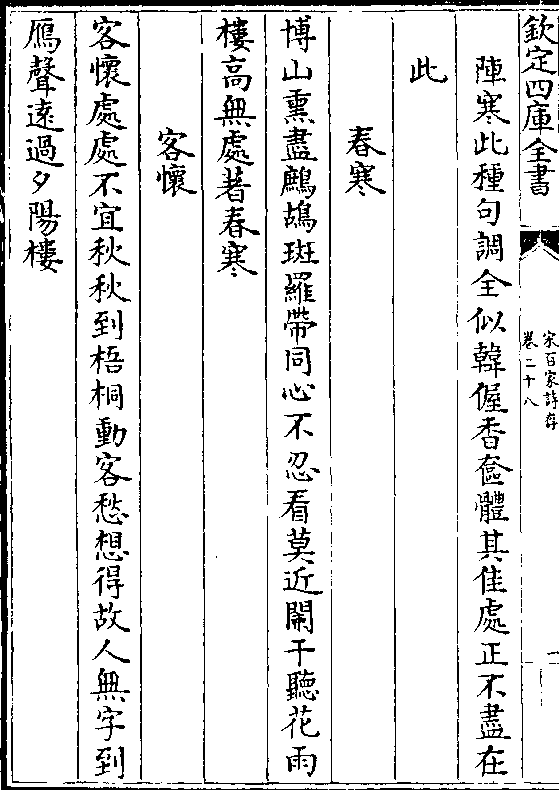 欽定四庫全書
宋百家詩存
卷二十八
陣寒此種句調全似韓偓香奩體其佳處正不盡在
此
春寒
博山熏盡鷓鴣斑羅帶同心不忍看莫近闌干聽花雨
樓高無處著春寒
客懷
客懷處處不宜秋秋到梧桐動客愁想得故人無字到
鴈聲遠過夕陽樓